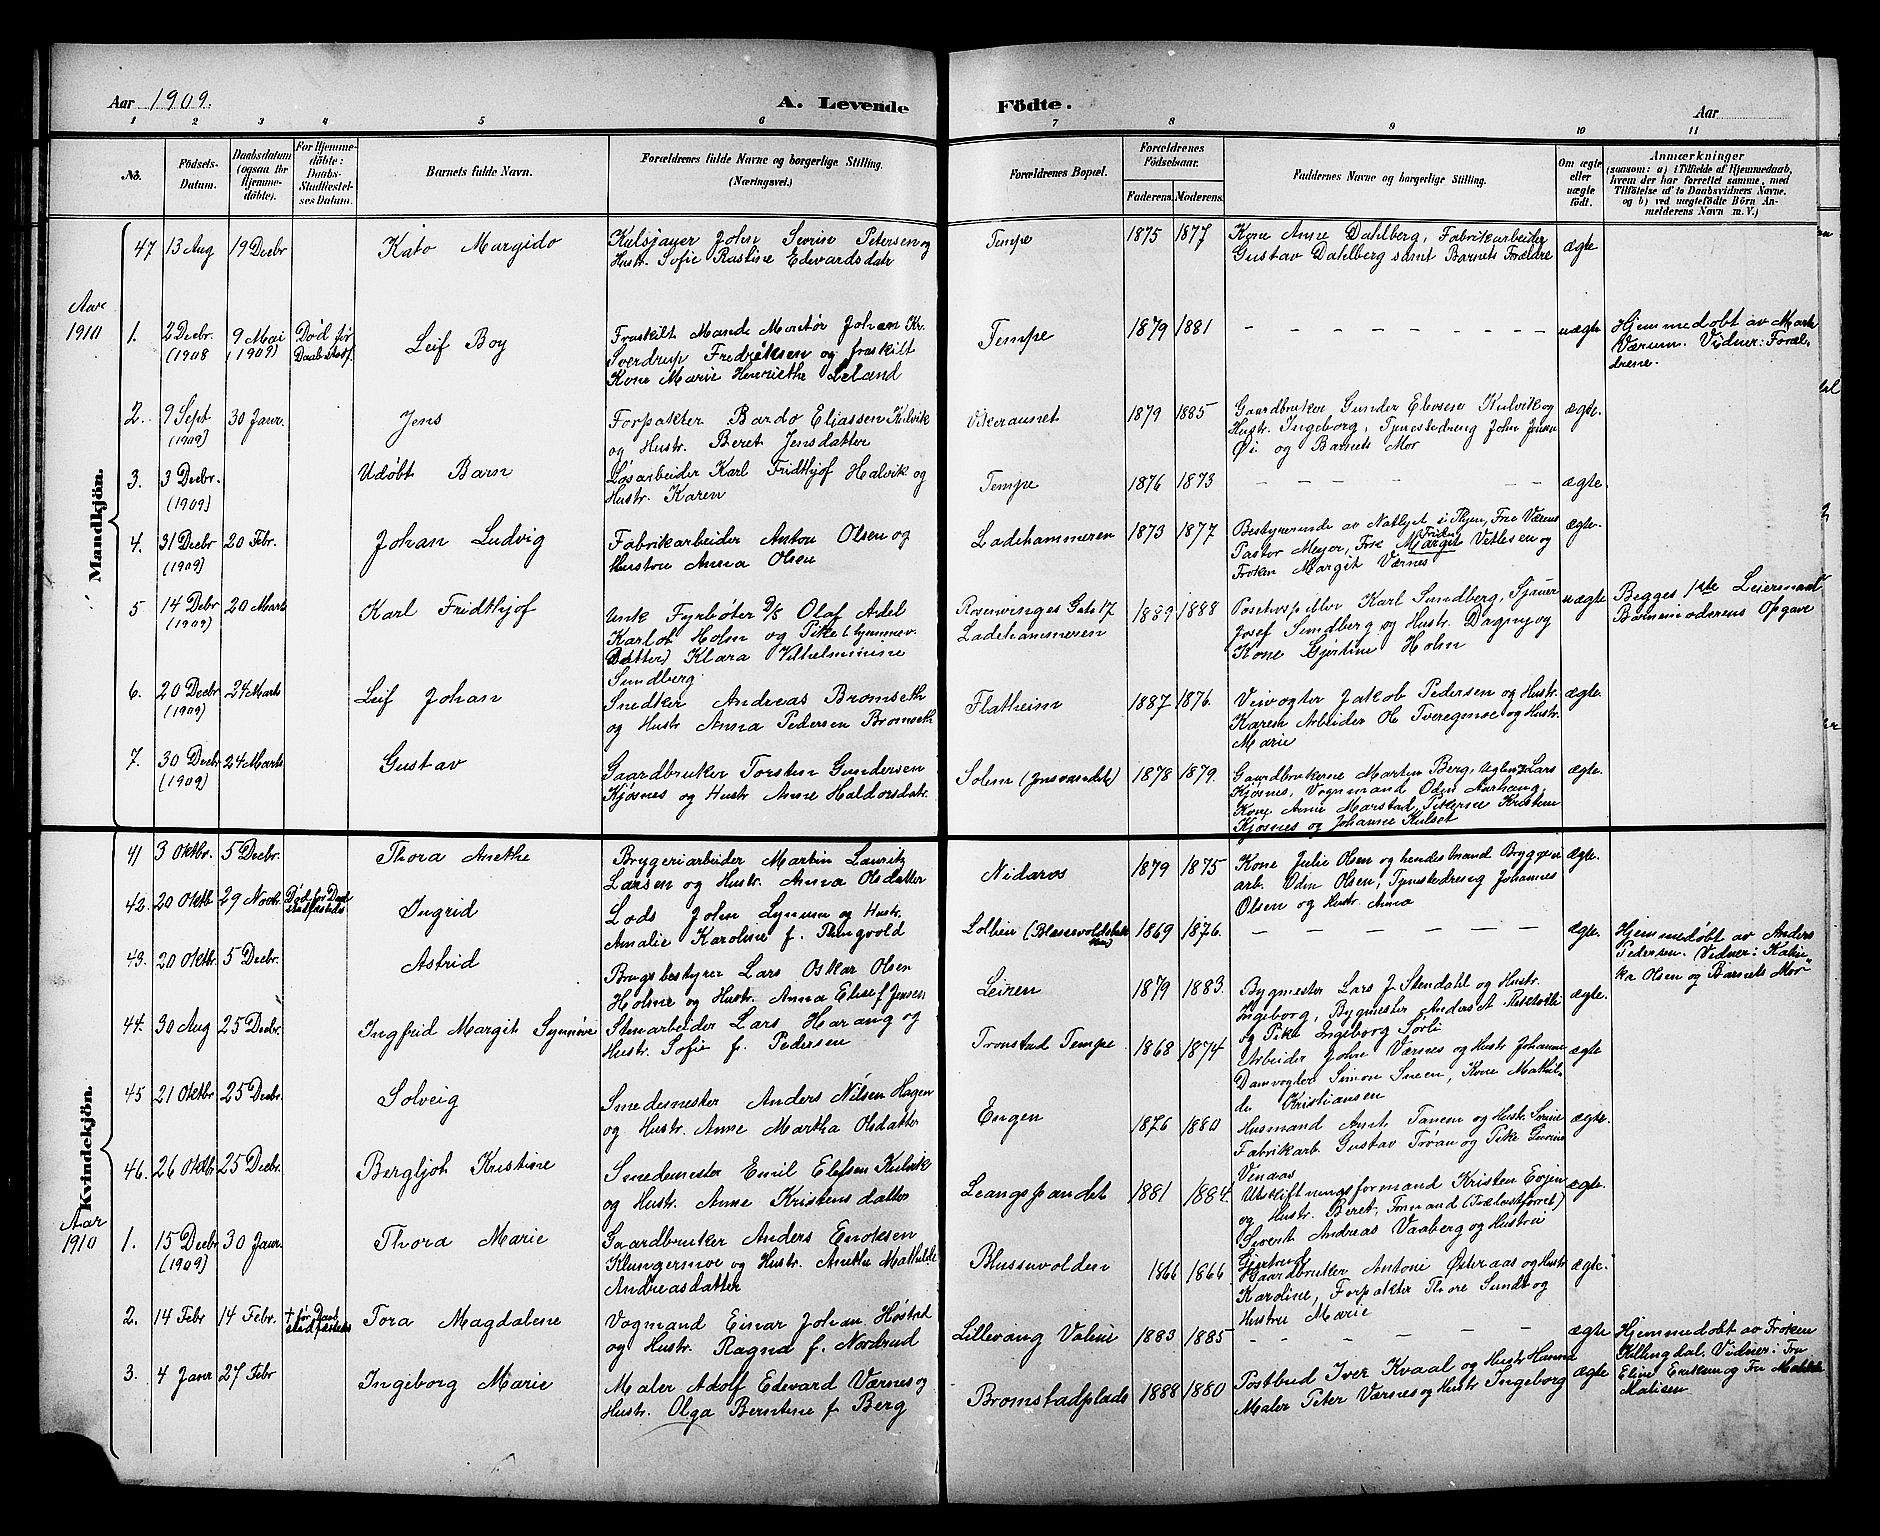 Aar 1909.
A. Levende Födte.
Aar
1 2 3 4 5 6 7 8 9 10 11
No.
Födsels-Datum.
Daabsdatum (ogsaa for Hjemme-döbte).
For Hjemme-döbte: Daabs-Stadfæstel-ses Datum.
Barnets fulde Navn.
Forældrenes fulde Navne og borgerlige Stilling. (Næringsvei.)
Forældrenes Bopæl.
Forældrenes Födselsaar.
Faderens. Moderens.
Faddernes Navne og borgerlige Stilling.
Om ægte eller uægte födt.
Anmærkninger
(saasom: a) i Tilfælde af Hjemmedaab,
hvem der har forrettet samme, med
Tilföielse af to Daabsvidners Navne.
og b) ved uægtefödte Börn An-
melderens Navn m. V.)
Mandkjön.
47 13 Aug 19 Decbr Kato Margido
Johan Sevrin Petersen og
Hustr. Sofie Rastine Edvardsdatr
Tempe 1875 1877
Kone Anne Dahlberg, Fabrikarbeider
Gustav Dahlberg samt Barnets Forældre
ægte
Aar 1910
1. 2 Decbr. (1908 9 Mai (1909) Död før Daabstadf.
Leif Boy
Fraskilt Mand Johan Kr.
Sverdrup Fredriksen og fraskilt
Kone Marie Henriethe Leland
Tempe 1879 1881
uægte
Hjemmedøbt av
Værum. Vidner: Foræl-
drene.
2. 9 Sept (1909) 30 Janr. Jens
Forpakter Bardo Eliassen Kulvik
og Hustr. Beret Jensdatter
1879 1885
Gaardbruker Gunder Elevsen Kulvik og
Hustr. Ingeborg, Tjenestedreng John Jensen
Øi og Barnets Mor
ægte.
3. 3 Decbr. (1909) Udøbt Barn
Løsarbeider Karl Fridthjof Halvik og
Hustr. Karen
Tempe 1876 1873
ægte.
4. 31 Decbr (1909) 20 Febr. Johan Ludvig
Fabrikarbeider Anton Olsen og
Hustru Anna Olsen
Ladehammeren 1873 1877
Bestyrerinde av Natlyet i Thjem, Frk Værnes
Pastor Meyer, Frk Margit Vitlesen og
Frøken Margit Værnes
ægte.
5 14 Debr (1909) 20 Marts Karl Fridthjof
Unk Fyrbøter D/S Olaf Adel
Karlot Holm og Pike (Tømmerm.
Datter) Klara Vilhelmine
Sundberg
Rosenvinges Gate 17
Ladehammeren
1889 1888
Karl Sundberg, Sjauer
Josef Sundberg og Hustr. Dagny og
Kone Gjertine Holm
uægte
Begges 1ste Leiermaal
Barnemoderens Opgave
6. 20 Decbr (1909) 24 Marts Leif Johan
Snedker Andreas Bromseth
og Hustr Anna Pedersen Bromseth
Flatheim 1887 1876.
Veivogter Jakob Pedersen og Hustr.
Karen Arbeider Ole Tveregense og Hustr.
Marie
ægte.
7. 30 Decbr (1909) 24 Marts Gustav
Gaardbruker Torsten Gundersen
Kjøsnes og Hustr Anne Haldorsdatr.
Solem 1878 1879.
Gaardbrukerne Martin Berg, Lars
Kjøsnes, Vognmand Oden Aarhaug,
Kone Anne Marstad, Pikerne Kristine
Kjøsnes og Johanne Kulset
ægte.
Kvindekjön.
41 3 Oktbr. 5 Decbr. Thora Anethe
Bryggeriarbeider Martin Lauritz
Larsen og Hustr. Anna Olsdatter
Nidaros 1879 1875
Kone Julie Olsen og hendes Mand Bryggeri
arb. Oden Olsen, Tjenestedreng Johannes
Olsen og Hustr. Anna
ægte.
42. 20 Oktb 29 Novbr Død før Daab stadfæstedes
Ingrid
Lods John Lynum og Hustr.
Amalie Karoline f. Thingvold
1869 1876.
ægte.
Hjemmedøbt av Anders
Pedersen. (Vidner: Katin-
ka Olsen og Barnets Mor
43. 20 Oktbr. 5 Decbr. Astrid
Brugsbestyrer Lars Oskar Olsen
Holme og Hustr. Anna Elise f Jensen
Leiren 1879 1883.
Bygmester Lars J. Stendahl og Hustr.
Ingeborg, Bygmester Anders
og Pike Ingeborg Sørli
ægte.
44. 30 Aug 25 Decbr. Ingfrid Margit Synnøve
Stenarbeider Lars Harang og
Hustr. Sofie f. Pedersen
Tronstad Tempe. 1868 1874
Arbeider John Værnes og Hustr Johanne
Damvogter Simon Sneen, Kone Mathil-
de Kristiansen
ægte
45 21 Oktbr 25 Decbr. Solveig
Smedemester Anders Nilsen Hagen
og Hustr. Anne Martha Olsdatter
Engen 1876 1880
Husmand Arnt Tanem og Hustr. Serine
Fabrikarb. Gustav Trøan og Pike
Vinaas
ægte.
46. 26 Oktbr 25 Decbr. Bergljoh Kristine
Smedemester Emil Elefsen Kulvik
og Hustr. Anne Kristensdatter
Leangspandet 1881 1884.
Utskiftningsformand Kristen Evjen
og Hustr. Beret, Formand
Sivert Andreas Vaaberg og Hustru
Gjertrud
ægte.
Aar 1910
1. 15 Decbr (1909) 30 Janr. Thora Marie
Gaardbruker Anders Enoksen
Klungermoe og Hustr. Anethe Mathilde
Andreasdatter
Blussuvolden 1866 1866
Gaardbruker Antoni Østeraas og Hustr
Karoline, Forpakter Thore Sundt og
Hustru Marie
ægte.
2. 14 Febr 14 Febr. † før Daab stadfæstedes
Tora Magdalene
Vogmand Einar Johan Høstad
og Hustr. Ragna f. Nordrud
Lillevang 1883 1885
ægte
Hjemmedøbt av Frøken
Killingdal. Vidner: Fru
Eline Eriksen og Fru Mathilde
Matisen
3. 4 Janr 27 Febr Ingeborg Marie
Maler Adolf Edevard Værnes og
Hustr. Olga Berntine f. Berg
Bromstadplads 1888 1880
Postbud Iver Kvaal og Hustr Hanna
Maler Peter Værnes og Hustr Ingeborg
ægte